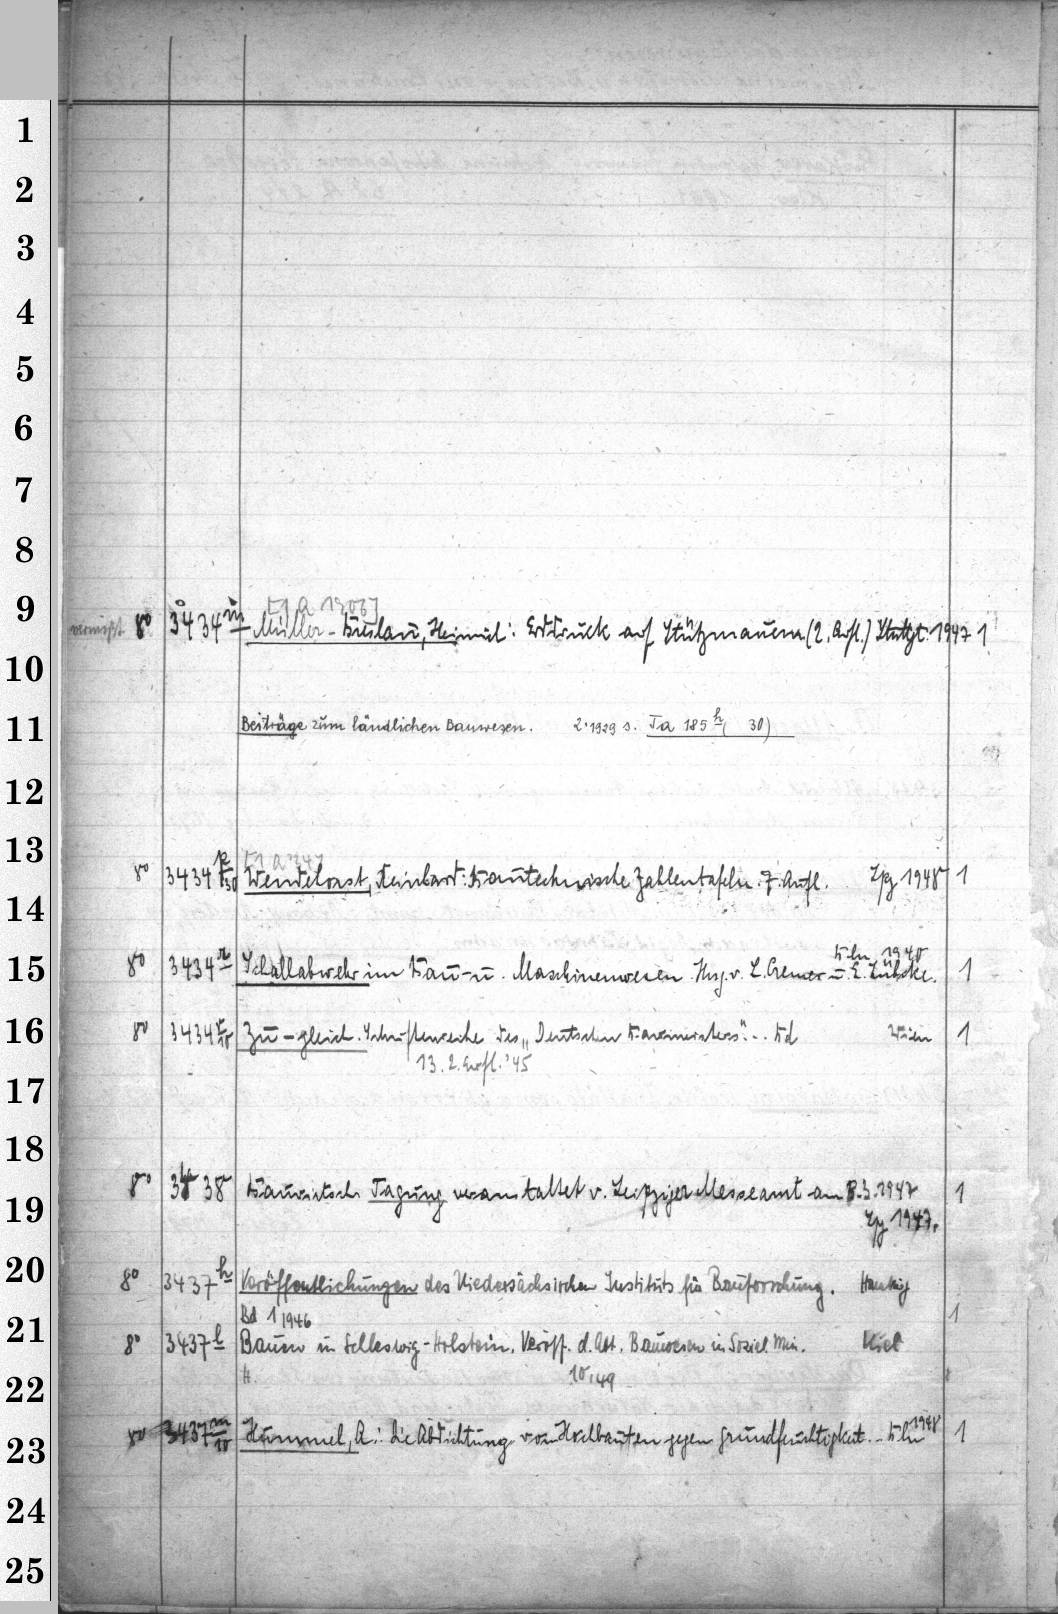 1
2
3
4
5
6
7
8
9
vermißt 8° 3434 m Müller-Breslau, Heinrich: Erddruck auf Stützmauern (2. Aufl.) Stuttgt. 1947 1
10
11 Beiträge zum ländlichen Bauwesen. 2.1929 s. Ta 185 h ( 30)
12
13
8° 3434 Wendehorst, Reinhard: Bautechnische Zahlentafeln. 7. Aufl. Lpz 1948 1
14
Bln 1940
15 8° 3434 Schallabwehr im Bau- u. Maschinenwesen Hrsg. v. L. Cremer u. E. Lübcke. 1
16 8° 3434 Zu-gleich. Schriftenreihe des "Deutschen Baumeisters"... Bd Wien 1
13. 2. Aufl. '45
17
18
8° 38 Bauwirtsch. Tagung veranstaltet v. Leipziger Messeamt am 8.3.1947 1
19 Lpz 1947.
20 8° 3437 h Veröffentlichungen des Niedersächsischen Instituts für Bauforschung.
Bd 1 1946 1
21 8° 3437 l Bauen in Schleswig-Holstein. Veröff. d. Abt. Bauwesen im Sozial Min. Kiel
22 H. 10, 49
23 8° 3437 m 10 Hummel, A.: Die Abdichtung von Hochbauten gegen Grundfeuchtigkeit. Bln 1948 1
24
25